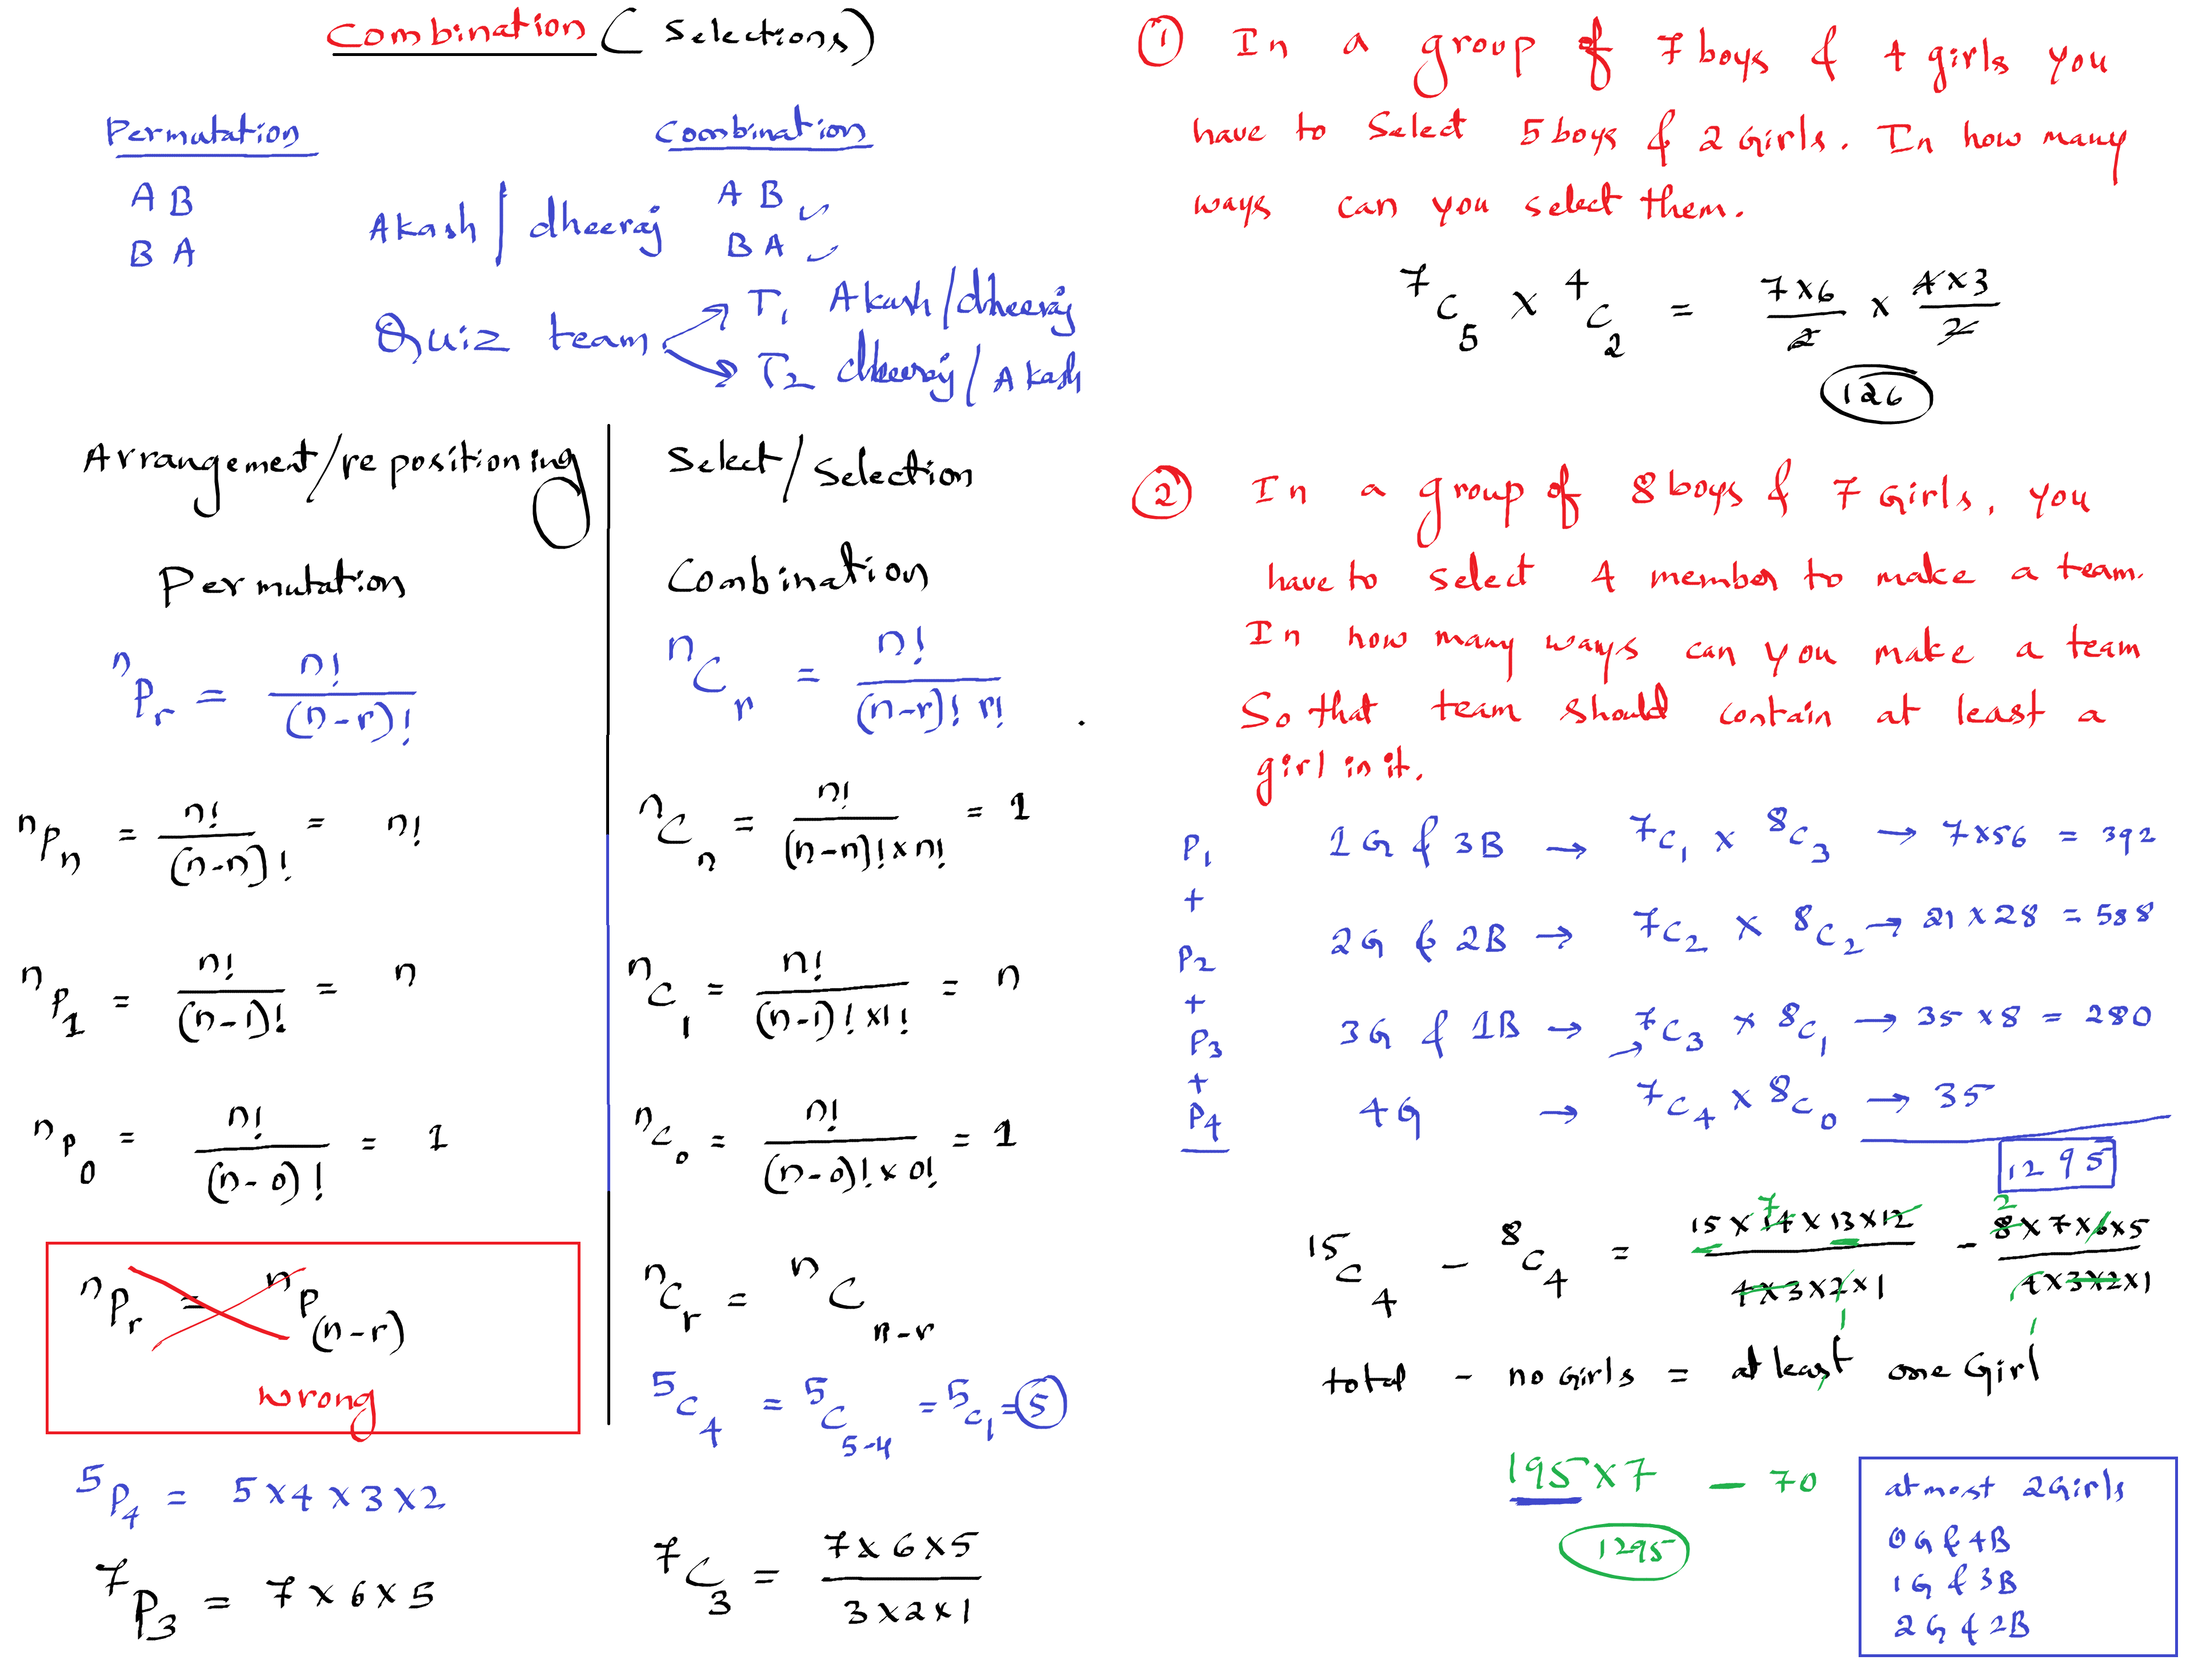 Combination (Selections)
Permutation
A B
B A
Akash / dheeraj
Combination
A B ✓
B A ✓
Quiz team
T1 Akash/dheeraj
T2 dheeraj/Akash
Arrangement/repositioning
Permutation
nPr = n!/(n-r)!
nPn = n!/(n-n)! = n!
nP1 = n!/(n-1)! = n
nP0 = n!/(n-0)! = 1
nPr = nP(n-r)
wrong
5P4 = 5x4x3x2
7P3 = 7x6x5
Select/Selection
Combination
nCr = n!/(n-r)! r!
nCn = n!/(n-n)! x n! = 1
nC1 = n!/(n-1)! x1! = n
nC0 = n!/(n-0)! x 0! = 1
nCr = nCn-r
5C4 = 5C5-4 = 5C1 = 5
7C3 = 7x6x5/3x2x1
① In a group of 7 boys & 4 girls you
have to Select 5 boys & 2 Girls. In how many
ways can you select them.
7C5 x 4C2 = 7x6/2 x 4x3/2
126
② In a group of 8 boys & 7 Girls, you
have to select 4 member to make a team.
In how many ways can you make a team
So that team should contain at least a
girl in it.
P1 1G & 3B → 7C1 x 8C3 → 7x56 = 392
+
P2 2G & 2B → 7C2 x 8C2 → 21x28 = 588
+
P3 3G & 1B → 7C3 x 8C1 → 35x8 = 280
+
P4 4G → 7C4 x 8C0 → 35
1295
15C4 - 8C4 = 15x14x13x12/4x3x2x1 - 8x7x6x5/4x3x2x1
7
2
1
1
total - no Girls = at least one Girl
195x7 - 70
1295
atmost 2Girls
0G & 4B
1G & 3B
2G & 2B